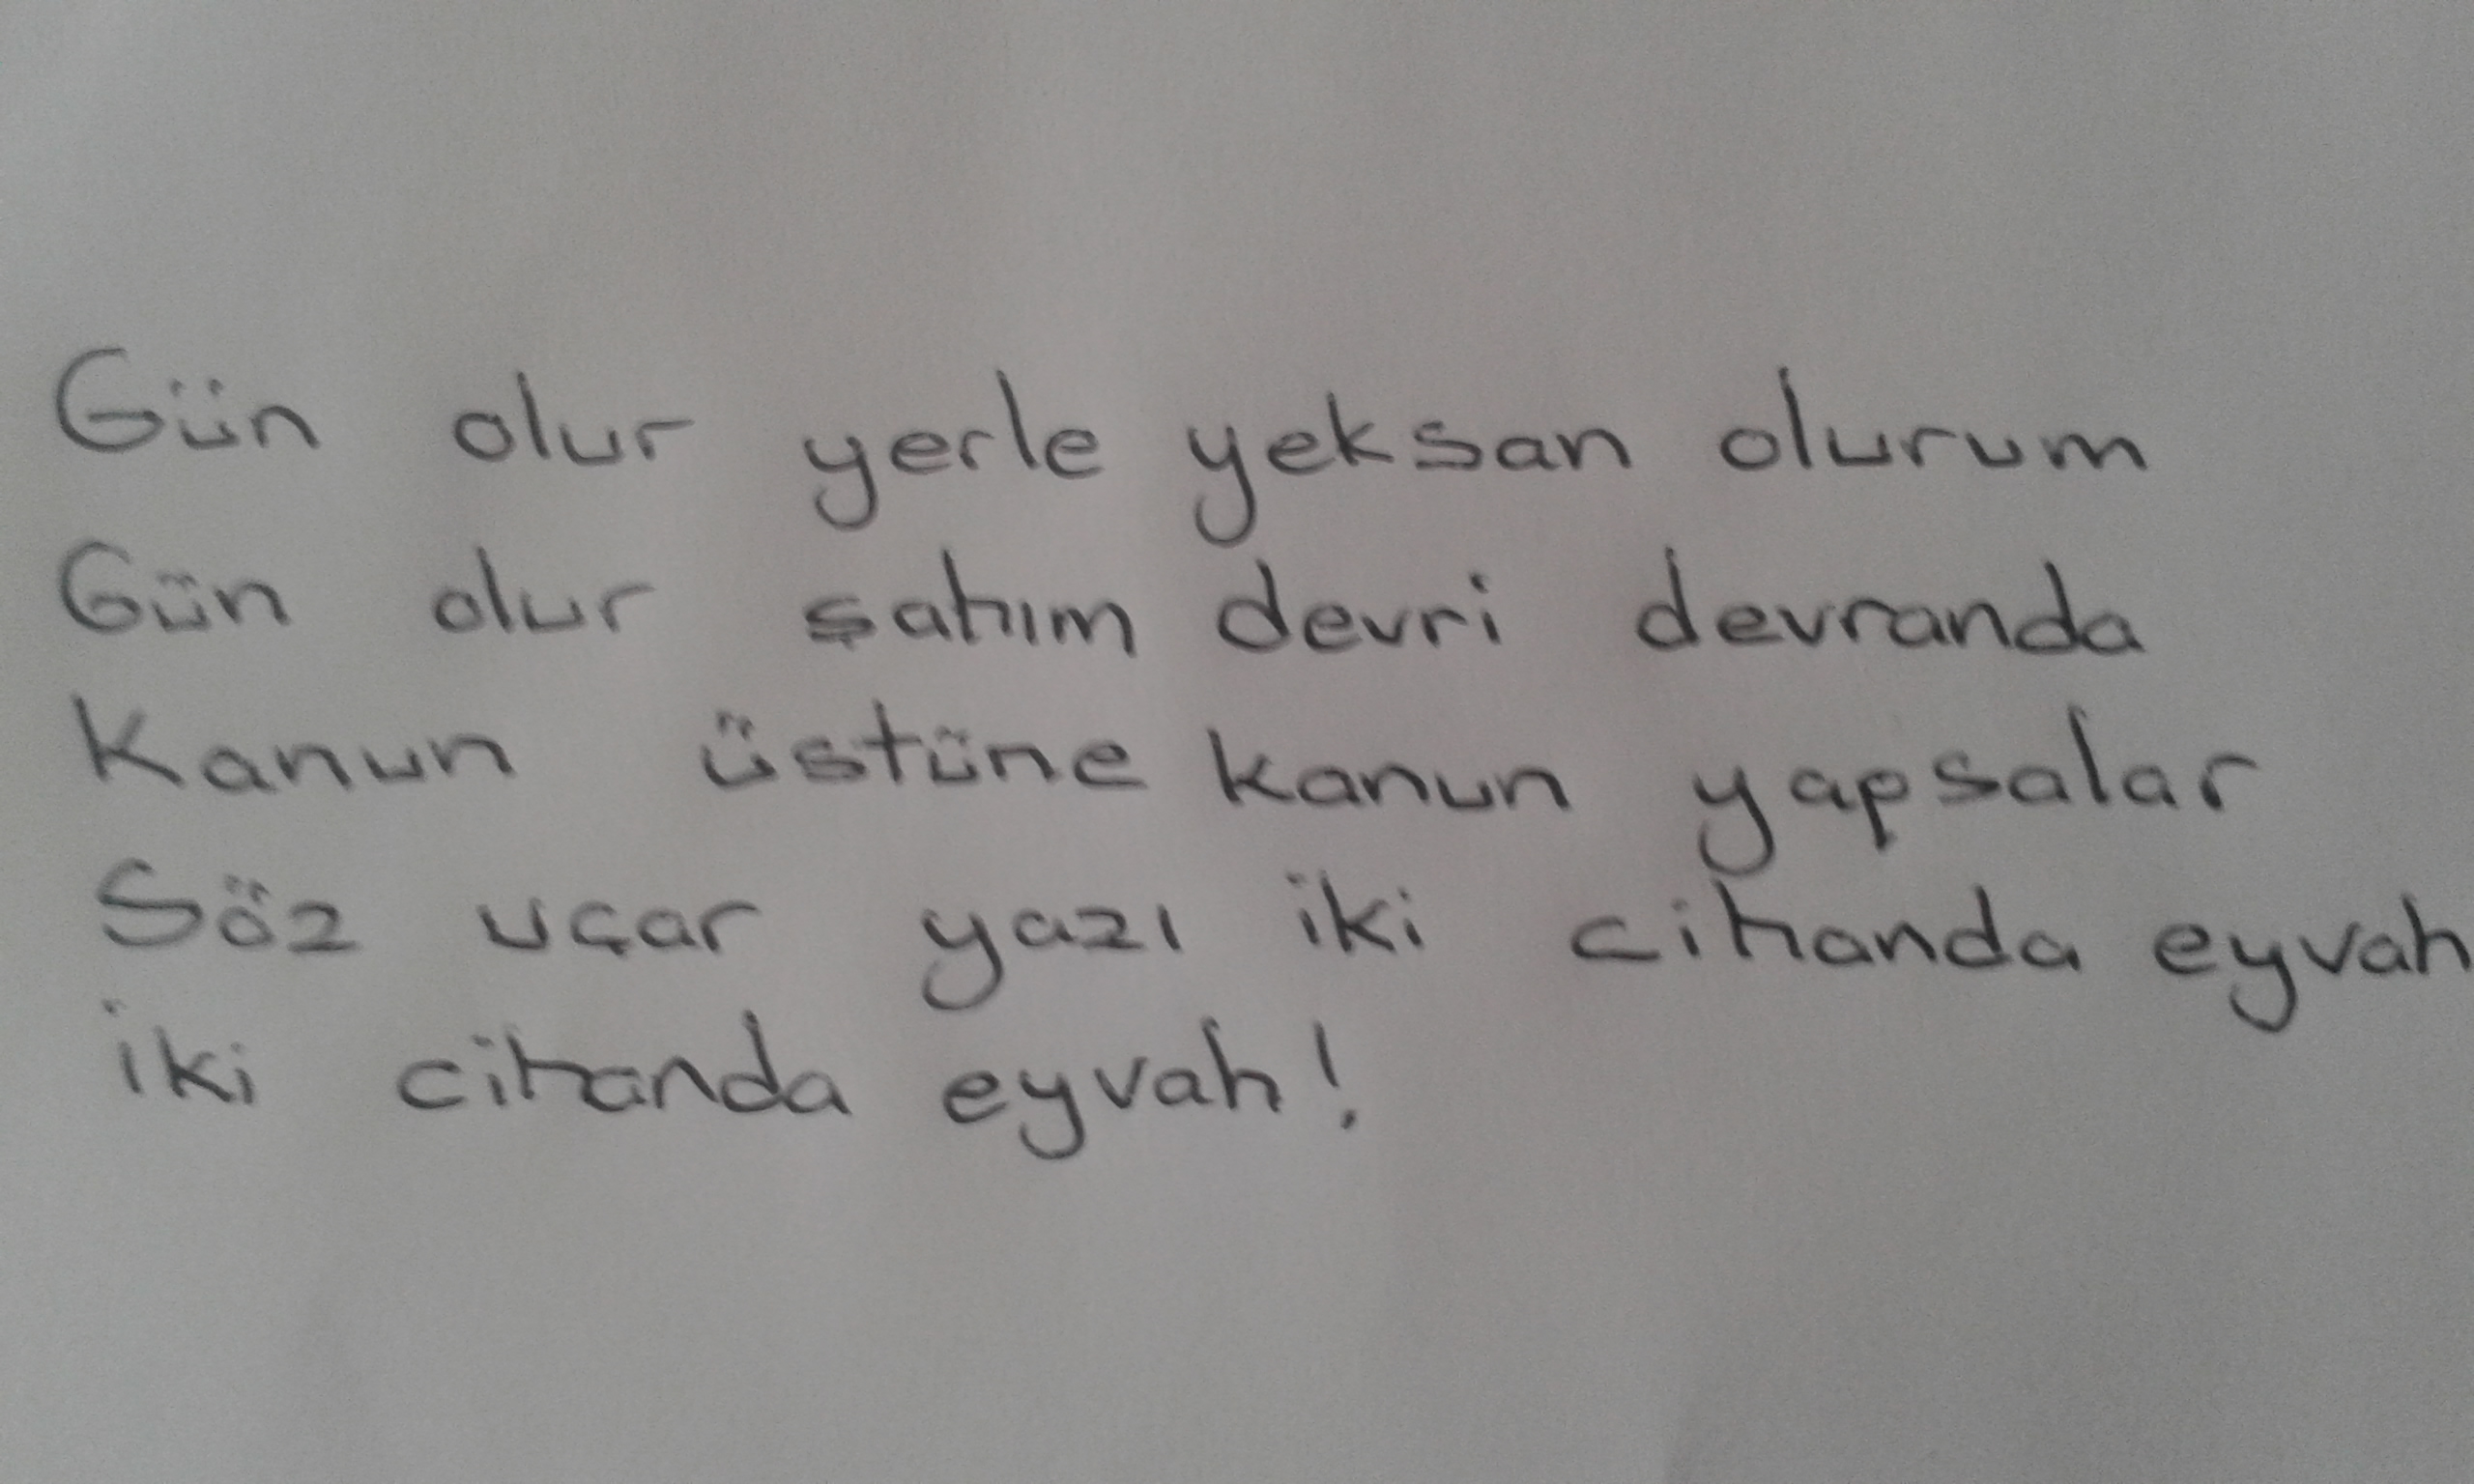 Gün olur yerle yeksan olurum
Gün olur şahım devri devranda
Kanun üstüne kanun yapsalar
Söz uçar yazı iki cihanda eyvah
iki cihanda eyvah!